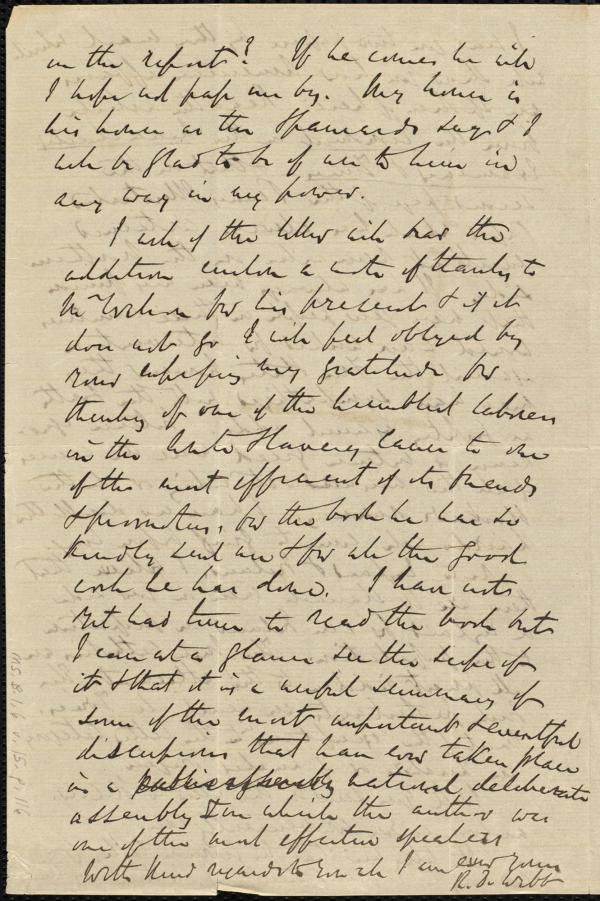 in the report? If he comes he will
I hope not pass me by. My house is
his house as the Spaniards say & I
will be glad to be of use to him in
any way in my power.
I will if the letter will bear the
addition enclose a note of thanks to
Mr Wilson for his present & if it
does not go I will feel obliged by
your expressing my gratitude for
thinking of one of the humblest laborers
in the Anti Slavery cause to one
of the most efficient of its friends
& promoters, for the book he has so
kindly sent me & for all the good
work he has done. I have not
yet had time to read the book but
I can at a glance see the scope of
it & that it is a useful summary of
some of the most important & eventful
discussions that have ever taken place
in a public assembly national deliberate
assembly & in which the author was
one of the most effective speakers
With kind regards to you all I am ever yours
R. D. Webb
MS. B.1.6 v.15, p.116